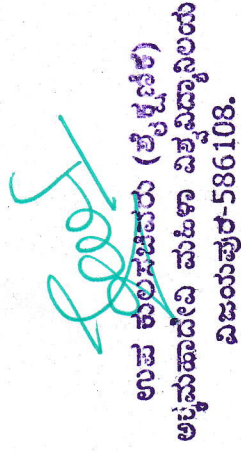 ಉಪ ಕುಲಸಚಿವರು (ಶೈಕ್ಷಣಿಕ)
ಅಕ್ಕಮಹಾದೇವಿ ಮಹಿಳಾ ವಿಶ್ವವಿದ್ಯಾನಿಲಯ
ವಿಜಯಪುರ-586108.